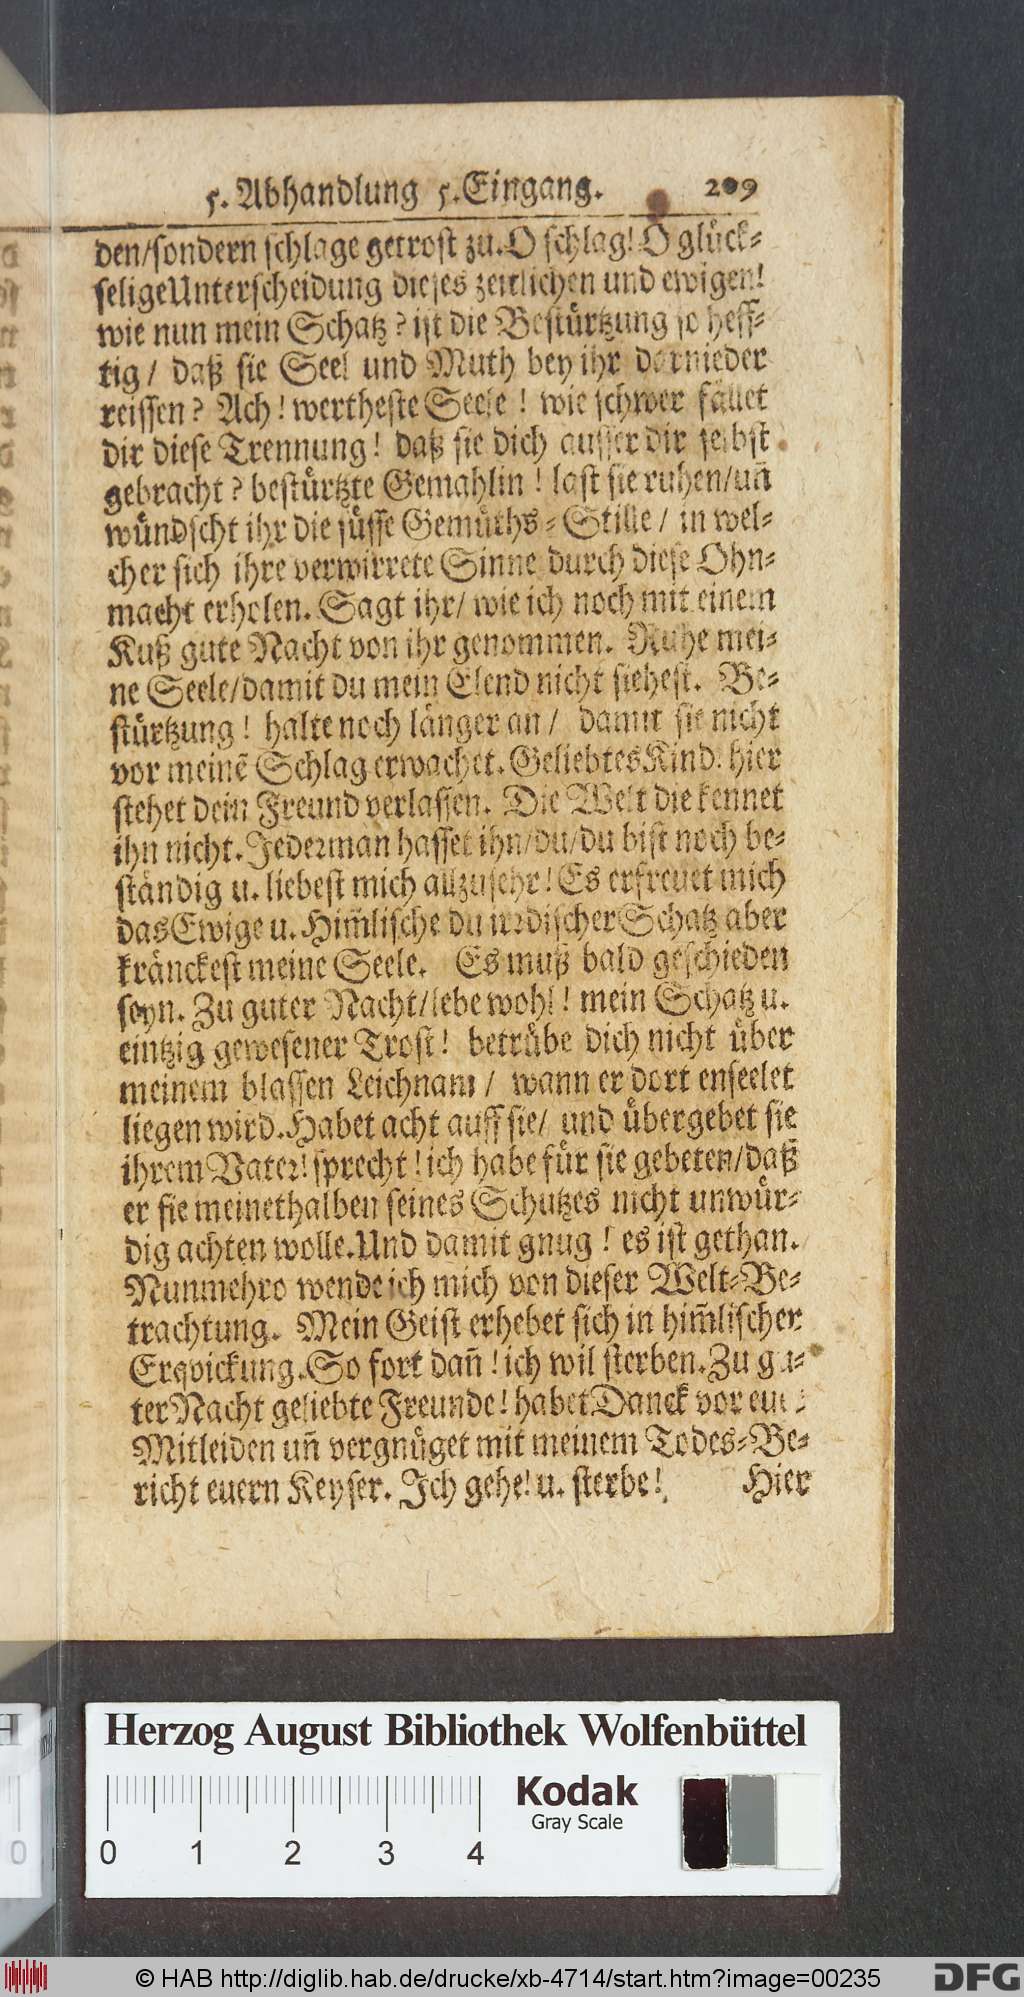 5. Abhandlung 5. Eingang. 209
den/sondern schlage getrost zu. O schlag! O glück-
selige Unterscheidung dieses zeitlichen und ewigen!
wie nun mein Schatz? ist die Bestürtzung so heff-
tig/ daß sie Seel und Muth bey ihr darnieder
reissen? Ach! wertheste Seele! wie schwer fället
dir diese Trennung! daß sie dich ausser dir selbst
gebracht? bestürtzte Gemahlin! last sie ruhen/uñ
wündscht ihr die süsse Gemüths-Stille/ in wel-
cher sich ihre verwirrete Sinne durch diese Ohn-
macht erholen. Sagt ihr/ wie ich noch mit einem
Kuß gute Nacht von ihr genommen. Ruhe mei-
ne Seele/damit du mein Elend nicht siehest. Be-
stürtzung! halte noch länger an/ damit sie nicht
vor meinẽ Schlag erwachet. Geliebtes Kind! hier
stehet dein Freund verlassen. Die Welt die kennet
ihn nicht. Jederman hasset ihn/du/du bist noch be-
ständig u. liebest mich allzusehr! Es erfreuet mich
das Ewige u. Him̃lische du irrdischer Schatz aber
kränckest meine Seele. Es muß bald geschieden
seyn. Zu guter Nacht/lebe wohl! mein Schatz u.
eintzig gewesener Trost! betrübe dich nicht über
meinem blassen Leichnam/ wann er dort enseelet
liegen wird. Habet acht auff sie/ und übergebet sie
ihrem Vater! sprecht! ich habe für sie gebeten/daß
er sie meinethalben seines Schutzes nicht unwür-
dig achten wolle. Und damit gnug! es ist gethan.
Nunmehro wende ich mich von dieser Welt-Be-
trachtung. Mein Geist erhebet sich in him̃lischer
Erqvickung. So fort dañ! ich wil sterben. Zu gu-
ter Nacht geliebte Freunde! habet Danck vor euer
Mitleiden uñ vergnüget mit meinem Todes-Be-
richt euern Keyser. Ich gehe! u. sterbe! Hier
Herzog August Bibliothek Wolfenbüttel
Kodak
Gray Scale
0 1 2 3 4
0
© HAB http://diglib.hab.de/drucke/xb-4714/start.htm?image=00235
DFG